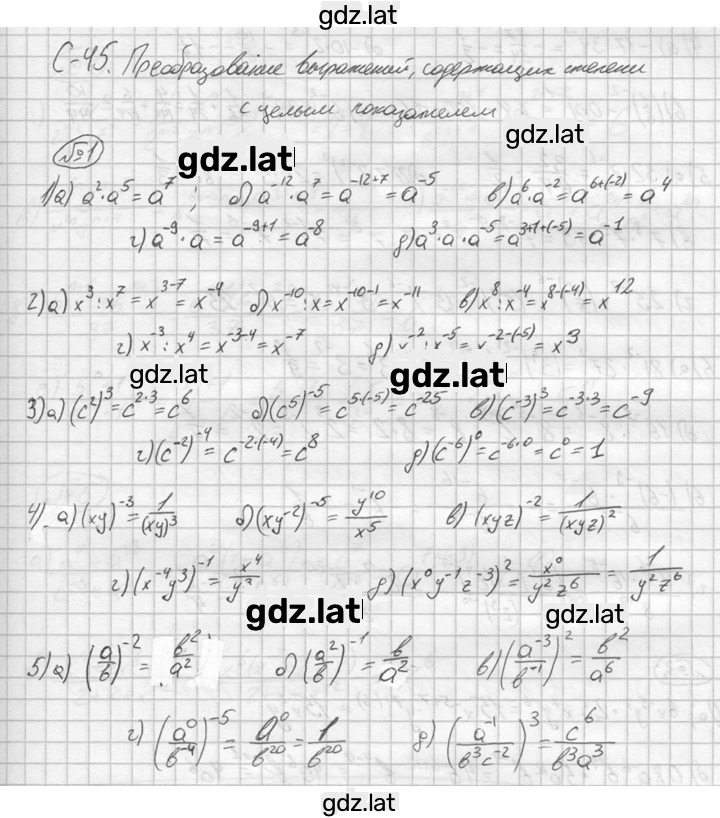 gdz.lat
С-45. Преобразование выражений, содержащих степени
с целым показателем
gdz.lat
№1
gdz.lat
1)а) a²·a⁵=a⁷; б) a⁻¹²·a⁷=a⁻¹²⁺⁷=a⁻⁵ в) a⁶·a⁻²=a⁶⁺⁽⁻²⁾=a⁴
г) a⁻⁹·a=a⁻⁹⁺¹=a⁻⁸ д) a³·a·a⁻⁵=a³⁺¹⁺⁽⁻⁵⁾=a⁻¹
2)а) x³:x⁷=x³⁻⁷=x⁻⁴ б) x⁻¹⁰:x=x⁻¹⁰⁻¹=x⁻¹¹ в) x⁸:x⁻⁴=x⁸⁻⁽⁻⁴⁾=x¹²
г) x⁻³:x⁴=x⁻³⁻⁴=x⁻⁷ д) x⁻²:x⁻⁵=x⁻²⁻⁽⁻⁵⁾=x³
gdz.lat gdz.lat
3)а) (c²)³=c²·³=c⁶ б) (c⁵)⁻⁵=c⁵·⁽⁻⁵⁾=c⁻²⁵ в) (c⁻³)³=c⁻³·³=c⁻⁹
г) (c⁻²)⁻⁴=c⁻²·⁽⁻⁴⁾=c⁸ д) (c⁻⁶)⁰=c⁻⁶·⁰=c⁰=1
4) а) (xy)⁻³=1/(xy)³ б) (xy⁻²)⁻⁵=y¹⁰/x⁵ в) (xyz)⁻²=1/(xyz)²
г) (x⁻⁴y³)⁻¹=x⁴/y³ д) (x⁰y⁻¹z⁻³)²=x⁰/y²z⁶=1/y²z⁶
gdz.lat gdz.lat
5)а) (a/b)⁻²=b²/a² б) (a²/b)⁻¹=b/a² в) (a⁻³/b⁻¹)²=b²/a⁶
г) (a⁰/b⁻⁴)⁻⁵=a⁰/b²⁰=1/b²⁰ д) (a⁻¹/b³c⁻²)³=c⁶/b³a³
gdz.lat